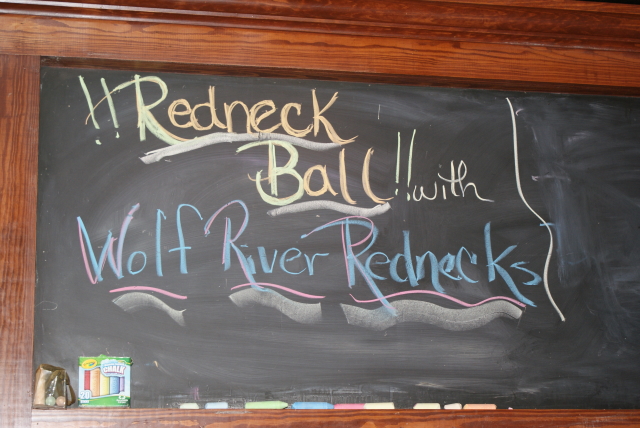 !! Redneck
Ball!! with
Wolf River Rednecks
Crayola
CHALK